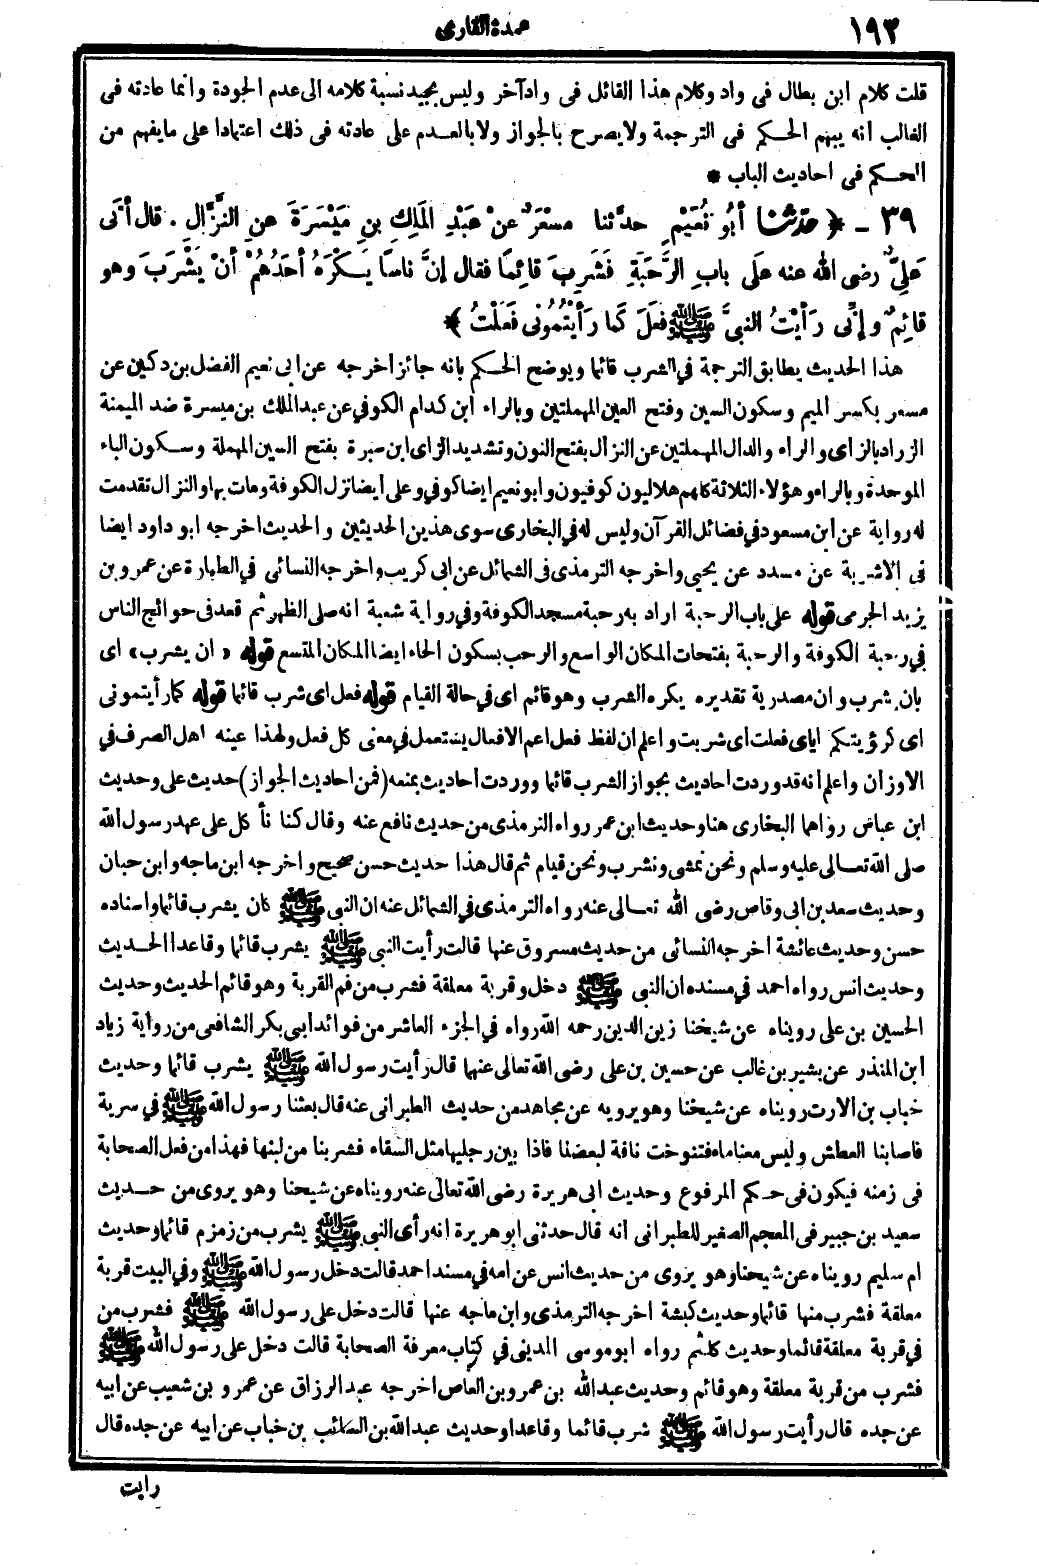 ١٩٣
عمدة القارى
قلت كلام ابن بطال فى واد وكلام هذا القائل فى وادآخر وليس بجيد نسبة كلامه الى عدم الجودة وانما عادته فى
الغالب انه يبهم الحكم فى الترجمة ولا يصرح بالجواز ولا بالعدم على عادته فى ذلك اعتمادا على ما يفهم من
الحكم فى احاديث الباب *
٣٩ ـ ﴿ حَدَّثَنَا أَبُو نُعَيْمٍ حدَّثنا مِسْعَرٌ عنْ عَبْدِ المَلِكِ بنِ مَيْسَرَةَ عنِ النَّزَّالِ . قال أَتَى
عَلِيٌّ رضى الله عنه علَى بابِ الرَّحَبَةِ فَشَرِبَ قائِمًا فقال إنَّ ناسًا يَكْرَهُ أحَدُهُمْ أنْ يَشْرَبَ وهو
قائِمٌ وإنِّى رَأَيْتُ النبيَّ ﷺ فعلَ كما رَأَيْتُمُونى فَعَلْتُ ﴾
هذا الحديث يطابق الترجمة في الشرب قائما ويوضح الحكم بانه جائز اخرجه عن ابى نعيم الفضل بن دكين عن
مسعر بكسر الميم وسكون السين وفتح العين المهملتين وبالراء ابن كدام الكوفي عن عبد الملك بن ميسرة ضد الميمنة
الزراد بالزاى والراء والدال المهملتين عن النزال بفتح النون وتشديد الزاى ابن سبرة بفتح السين المهملة وسكون الباء
الموحدة وبالراء وهؤلاء الثلاثة كلهم هلاليون كوفيون وابو نعيم ايضا كوفي وعلى أيضا نزل الكوفة ومات بها والنزال تقدمت
له رواية عن ابن مسعود في فضائل القرآن وليس له في البخارى سوى هذين الحديثين والحديث اخرجه ابو داود ايضا
فى الاشربة عن مسدد عن يحيى واخرجه الترمذى فى الشمائل عن ابى كريب واخرجه النسائى في الطهارة عن عمرو بن
يزيد الجرمى قوله على باب الرحبة اراد به رحبة مسجد الكوفة وفي رواية شعبة انه صلى الظهر ثم قعد فى حوائج الناس
في رحبة الكوفة والرحبة بفتحات المكان الواسع والرحب بسكون الحاء ايضا المكان المتسع قوله «ان يشرب» اى
بان يشرب وان مصدرية تقديره يكره الشرب وهو قائم اى في حالة القيام قوله فعل اى شرب قائما قوله كما رأيتمونى
اى كرؤيتكم اياى فعلت اى شربت واعلم ان لفظ فعل اعم الافعال يستعمل في معنى كل فعل ولهذا عينه اهل الصرف في
الاوزان واعلم انه قد وردت احاديث بجواز الشرب قائما ووردت أحاديث بمنعه (فمن احاديث الجواز) حديث على وحديث
ابن عباس رواهما البخارى هنا وحديث ابن عمر رواه الترمذى من حديث نافع عنه وقال كنا نأكل على عهد رسول الله
صلى الله تعالى عليه وسلم ونحن نمشى ونشرب ونحن قيام ثم قال هذا حديث حسن صحيح واخرجه ابن ماجه وابن حبان
وحديث سعد بن ابى وقاص رضى الله تعالى عنه رواه الترمذى في الشمائل عنه ان النبى ﷺ كان يشرب قائما واسناده
حسن وحديث عائشة اخرجه النسائى من حديث مسروق عنها قالت رأيت النبى ﷺ يشرب قائما وقاعدا الحديث
وحديث انس رواه احمد في مسنده ان النبى ﷺ دخل وقربة معلقة فشرب من فم القربة وهو قائم الحديث وحديث
الحسين بن على رويناه عن شيخنا زين الدين رحمه الله رواه في الجزء العاشر من فوائد ابى بكر الشافعى من رواية زياد
ابن المنذر عن بشير بن غالب عن حسين بن على رضى الله تعالى عنهما قال رأيت رسول الله ﷺ يشرب قائما وحديث
خباب بن الارت رويناه عن شيخنا وهو يرويه عن مجاهد من حديث الطبرانى عنه قال بعثنا رسول الله ﷺ في سرية
فاصابنا العطش وليس معنا ماء فتنوخت ناقة لبعضنا فاذا بين رجليها مثل السقاء فشربنا من لبنها فهذا من فعل الصحابة
فى زمنه فيكون فى حكم المرفوع وحديث ابى هريرة رضى الله تعالى عنه رويناه عن شيخنا وهو يروى من حديث
سعيد بن جبير فى المعجم الصغير للطبرانى أنه قال حدثنى ابو هريرة انه رأى النبى ﷺ يشرب من زمزم قائما وحديث
ام سليم رويناه عن شيخنا وهو يروى من حديث انس عن امه في مسند احمد قالت دخل رسول الله ﷺ وفي البيت قربة
معلقة فشرب منها قائما وحديث كبشة اخرجه الترمذى وابن ماجه عنها قالت دخل على رسول الله ﷺ فشرب من
في قربة معلقة قائما وحديث كلثم رواه ابو موسى المدينى في كتاب معرفة الصحابة قالت دخل على رسول الله ﷺ
فشرب من قربة معلقة وهو قائم وحديث عبد الله بن عمرو بن العاص اخرجه عبد الرزاق عن عمرو بن شعيب عن ابيه
عن جده قال رأيت رسول الله ﷺ شرب قائما وقاعدا وحديث عبد الله بن السائب بن خباب عن ابيه عن جده قال
رايت